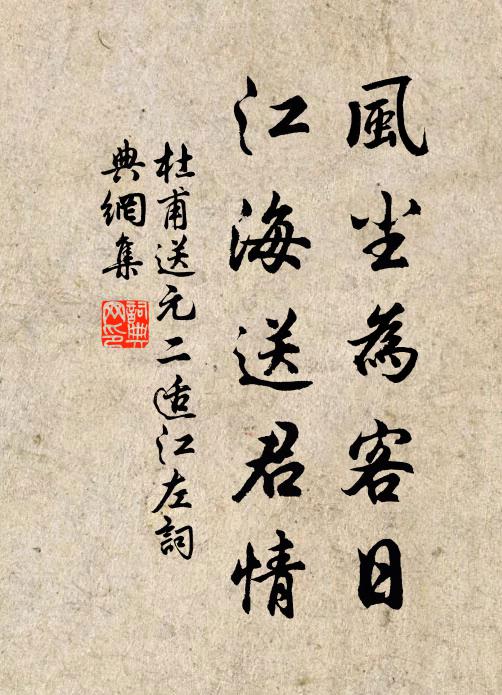 風尘為客日
江海送君情
杜甫送元二适江左詞
典網集
詞典
网印